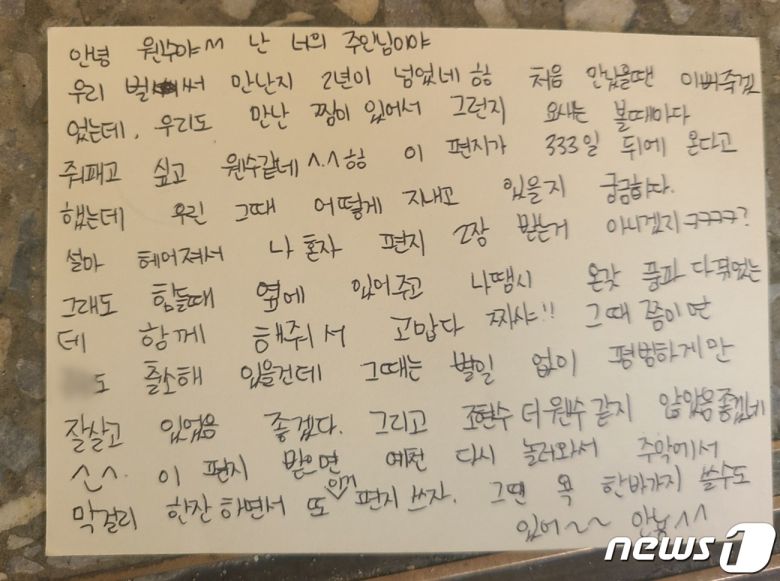 안녕 원수야~ 난 너의 주인님이야
우리 벌써 만난지 2년이 넘었네 힝 처음 만났을땐 이뻐죽겠
었는데, 우리도 만난 찜이 있어서 그런지 요새는 볼때마다
줘패고 싶고 원수같네 ^.^ 힝 이 편지가 333일 뒤에 온다고
했는데 우린 그때 어떻게 지내고 있을지 궁금하다.
설마 헤어져서 나 혼자 편지 2장 받는거 아니겠지ㅋㅋㅋㅋ?
그래도 힘들때 옆에 있어주고 나땜시 온갖 풍파 다 겪었는
데 함께 해줘서 고맙다 짜샤!! 그때 쯤이면
도 출소해 있을건데 그때는 별일 없이 평범하게만
잘살고 있었음 좋겠다. 그리고 조현수 더 원수 같지 않았음 좋겠네
^^. 이 편지 받으면 예전 다시 놀러와서 주막에서
막걸리 한잔 하면서 또 편지 쓰자. 그땐 욕 한바가지 쓸수도
있어~~ 안뇽^^
news1